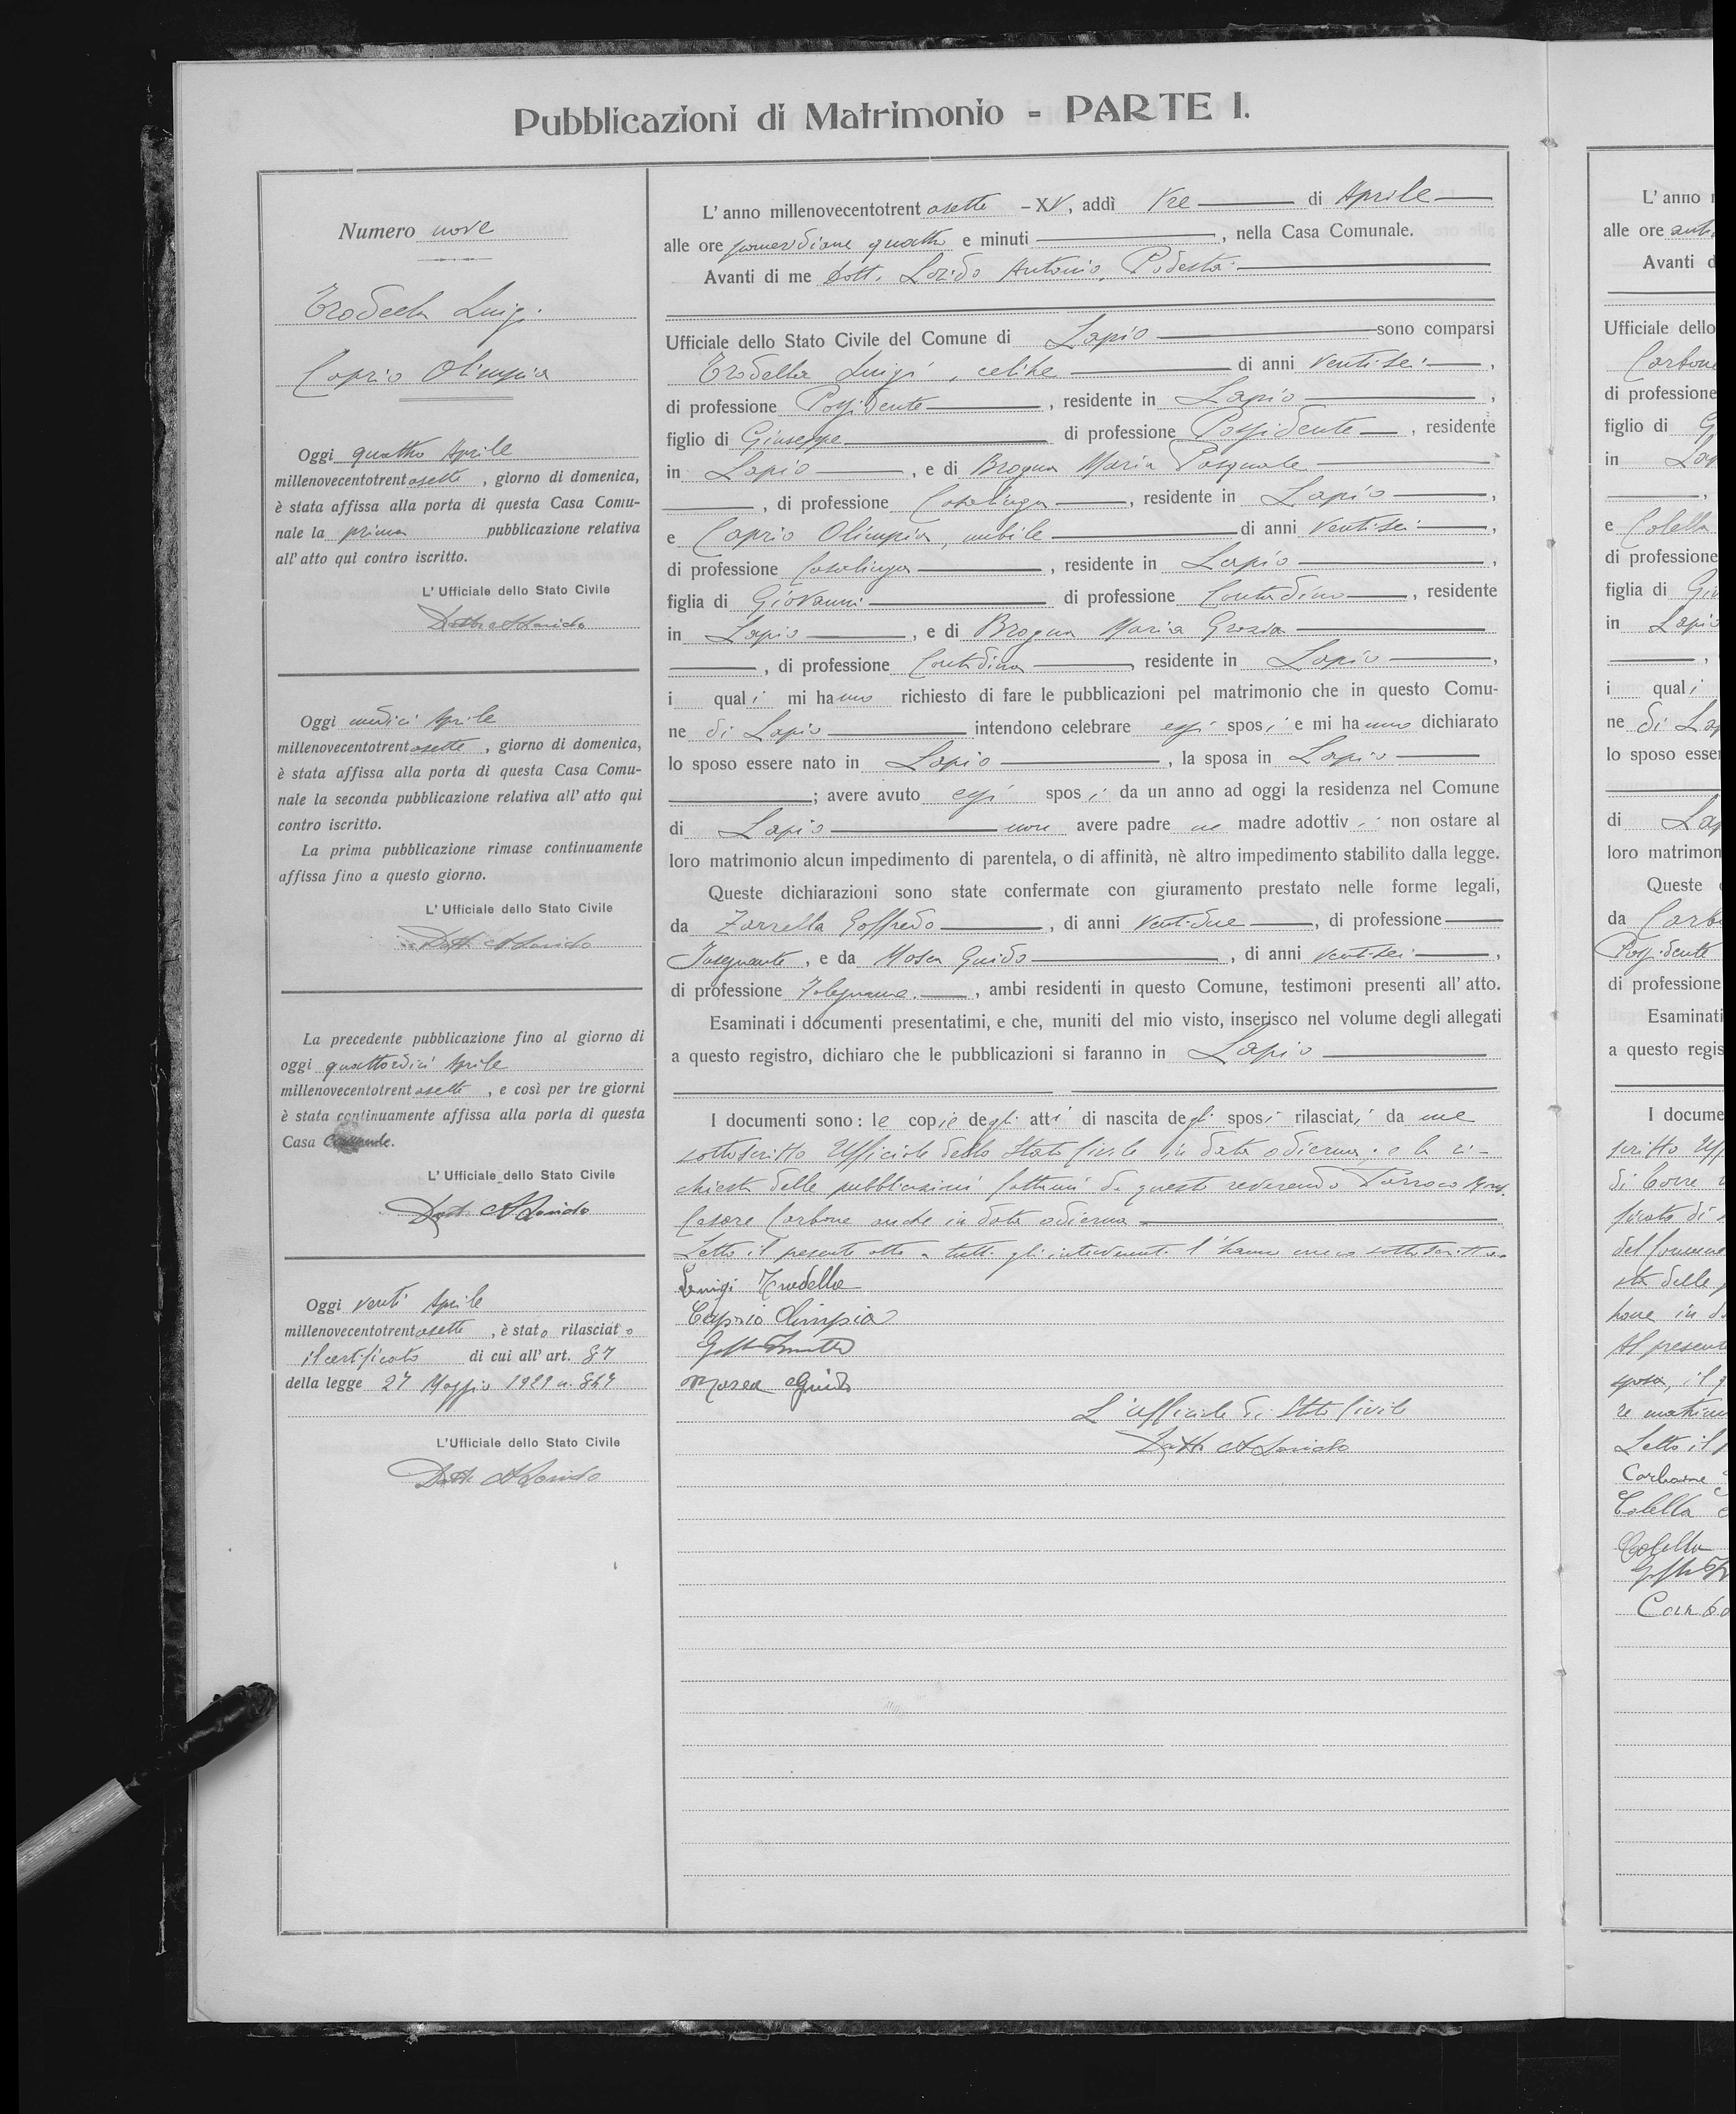 Pubblicazioni di Matrimonio - PARTE I.
Numero nove
Trodella Luigi
Caprio Olimpia
Oggi quattro Aprile
millenovecentotrentasette, giorno di domenica,
è stata affissa alla porta di questa Casa Comu-
nale la prima pubblicazione relativa
all'atto quì contro iscritto.
L'Ufficiale dello Stato Civile
Dott. A Lorido
Oggi undici Aprile
millenovecentotrentasette, giorno di domenica,
è stata affissa alla porta di questa Casa Comu-
nale la seconda pubblicazione relativa all'atto qui
contro iscritto.
La prima pubblicazione rimase continuamente
affissa fino a questo giorno.
L'Ufficiale dello Stato Civile
Dott. A Lorido
La precedente pubblicazione fino al giorno di
oggi quattordici Aprile
millenovecentotrentasette, e così per tre giorni
è stata continuamente affissa alla porta di questa
Casa Comunale.
L'Ufficiale dello Stato Civile
Dott. A Lorido
Oggi venti Aprile
millenovecentotrentasette, è stato rilasciato
il certificato di cui all'art. 87
della legge 27 Maggio 1929 n. 847
L'Ufficiale dello Stato Civile
Dott. A Lorido
L'anno millenovecentotrentasette - XV, addì tre di Aprile
alle ore pomeridiane quattro e minuti , nella Casa Comunale.
Avanti di me Dott. Lorido Antonio, Podestà
Ufficiale dello Stato Civile del Comune di Lapio sono comparsi
Trodella Luigi, celibe di anni ventisei,
di professione Possidente, residente in Lapio,
figlio di Giuseppe di professione Possidente, residente
in Lapio, e di Brogna Maria Pasquale
, di professione Casalinga, residente in Lapio,
e Caprio Olimpia, nubile di anni ventisei,
di professione Casalinga, residente in Lapio,
figlia di Giovanni di professione Contadino, residente
in Lapio, e di Brogna Maria Grazia
, di professione Contadina, residente in Lapio,
i quali mi hanno richiesto di fare le pubblicazioni pel matrimonio che in questo Comu-
ne di Lapio intendono celebrare essi sposi e mi hanno dichiarato
lo sposo essere nato in Lapio, la sposa in Lapio
; avere avuto essi sposi da un anno ad oggi la residenza nel Comune
di Lapio non avere padre ne madre adottivi non ostare al
loro matrimonio alcun impedimento di parentela, o di affinità, nè altro impedimento stabilito dalla legge.
Queste dichiarazioni sono state confermate con giuramento prestato nelle forme legali,
da Zarrella Goffredo, di anni ventidue, di professione
Insegnante, e da Mosca Guido, di anni ventisei,
di professione Falegname, ambi residenti in questo Comune, testimoni presenti all'atto.
Esaminati i documenti presentatimi, e che, muniti del mio visto, inserisco nel volume degli allegati
a questo registro, dichiaro che le pubblicazioni si faranno in Lapio
I documenti sono: le copie degli atti di nascita degli sposi rilasciati da me
sottoscritto Ufficiale dello Stato Civile in data odierna; e la ri-
chiesta delle pubblicazioni fattami da questo reverendo Parroco
Cesare Carbone anche in data odierna
Letto il presente atto a tutti gli intervenuti l'hanno meco sottoscritto.
Luigi Trodella
Caprio Olimpia
Mosca Guido
L'ufficiale di Stato Civile
Dott. A Lorido
L'anno
alle ore
Avanti
Ufficiale dello
Carbone
di professione
figlio di
in
e Colella
di professione
figlia di
in Lapio
i quali
ne di
lo sposo
di
loro
Queste
da
Possidente
di professione
Esaminati
a questo
I
Letto il
Carbone
Colella
Colella